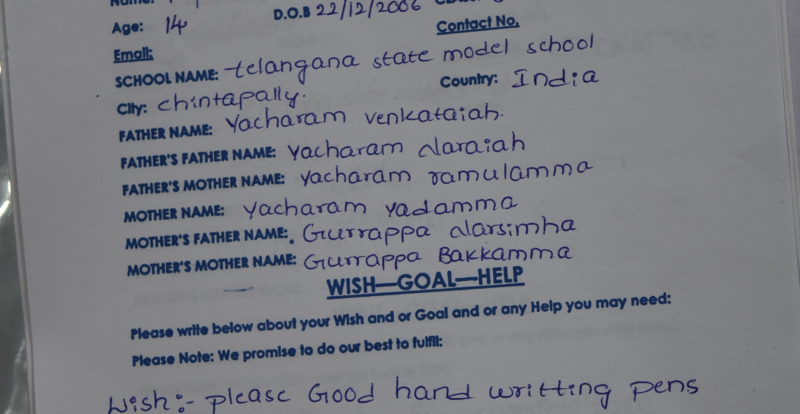 Name:
Age: 14 D.O.B 22/12/2006
Contact No.
Email:
SCHOOL NAME: telangana state model school
City: chintapally. Country: India
FATHER NAME: Yacharam venkataiah.
FATHER'S FATHER NAME: Yacharam Naraiah
FATHER'S MOTHER NAME: Yacharam ramulamma
MOTHER NAME: Yacharam yadamma
MOTHER'S FATHER NAME: Gurrappa Narsimha
MOTHER'S MOTHER NAME: Gurrappa Bakkamma
WISH—GOAL—HELP
Please write below about your Wish and or Goal and or any Help you may need:
Please Note: We promise to do our best to fulfil:
Wish:- please Good hand writting pens